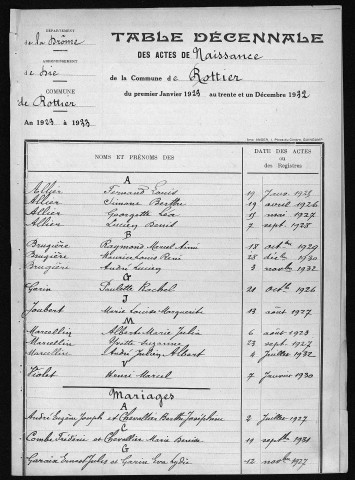 DÉPARTEMENT
de la Drôme
ARRONDISSEMENT
de Die
COMMUNE
de Rottier
An 1923 à 1933
TABLE DÉCENNALE
DES ACTES DE Naissance
de la Commune de Rottier
du premier Janvier 1923 au trente et un Décembre 1932
NOMS ET PRÉNOMS DES
DATE DES ACTES
ou
des Registres
A
Allier Fernand Louis 19
Allier Simone Berthe 19 avril 1926
Allier Georgette Léa mai 1927
Allier Lucien Benoit 7 sept. 1928
B
Brugière Raymond Marcel Aimé 18 octbre 1929
Brugière Maurice Louis René 28 1930
Brugière André Lucien 3 novbre 1932
G
Garin Paulette Rachel 21 octbre 1926
J
Joubert Marie Louise Marguerite 13 août 1927
M
Marcellin Albert Marie Julien 6 août 1923
Marcellin Yvette Suzanne 23 sept. 1927
Marcellin André Julien Albert 4 Juillet 1932
V
Violet Henri Marcel 7 Janvier 1930
Mariages
A
André Eugène Joseph et Chevallier Berthe Joséphine 2 Juillet 1927
C
Combe Frédéric et Chevallier Marie 19 septbre 1931
G
Garaix Ernest Jules et Garin Eva Lydie 12 novbre 1927